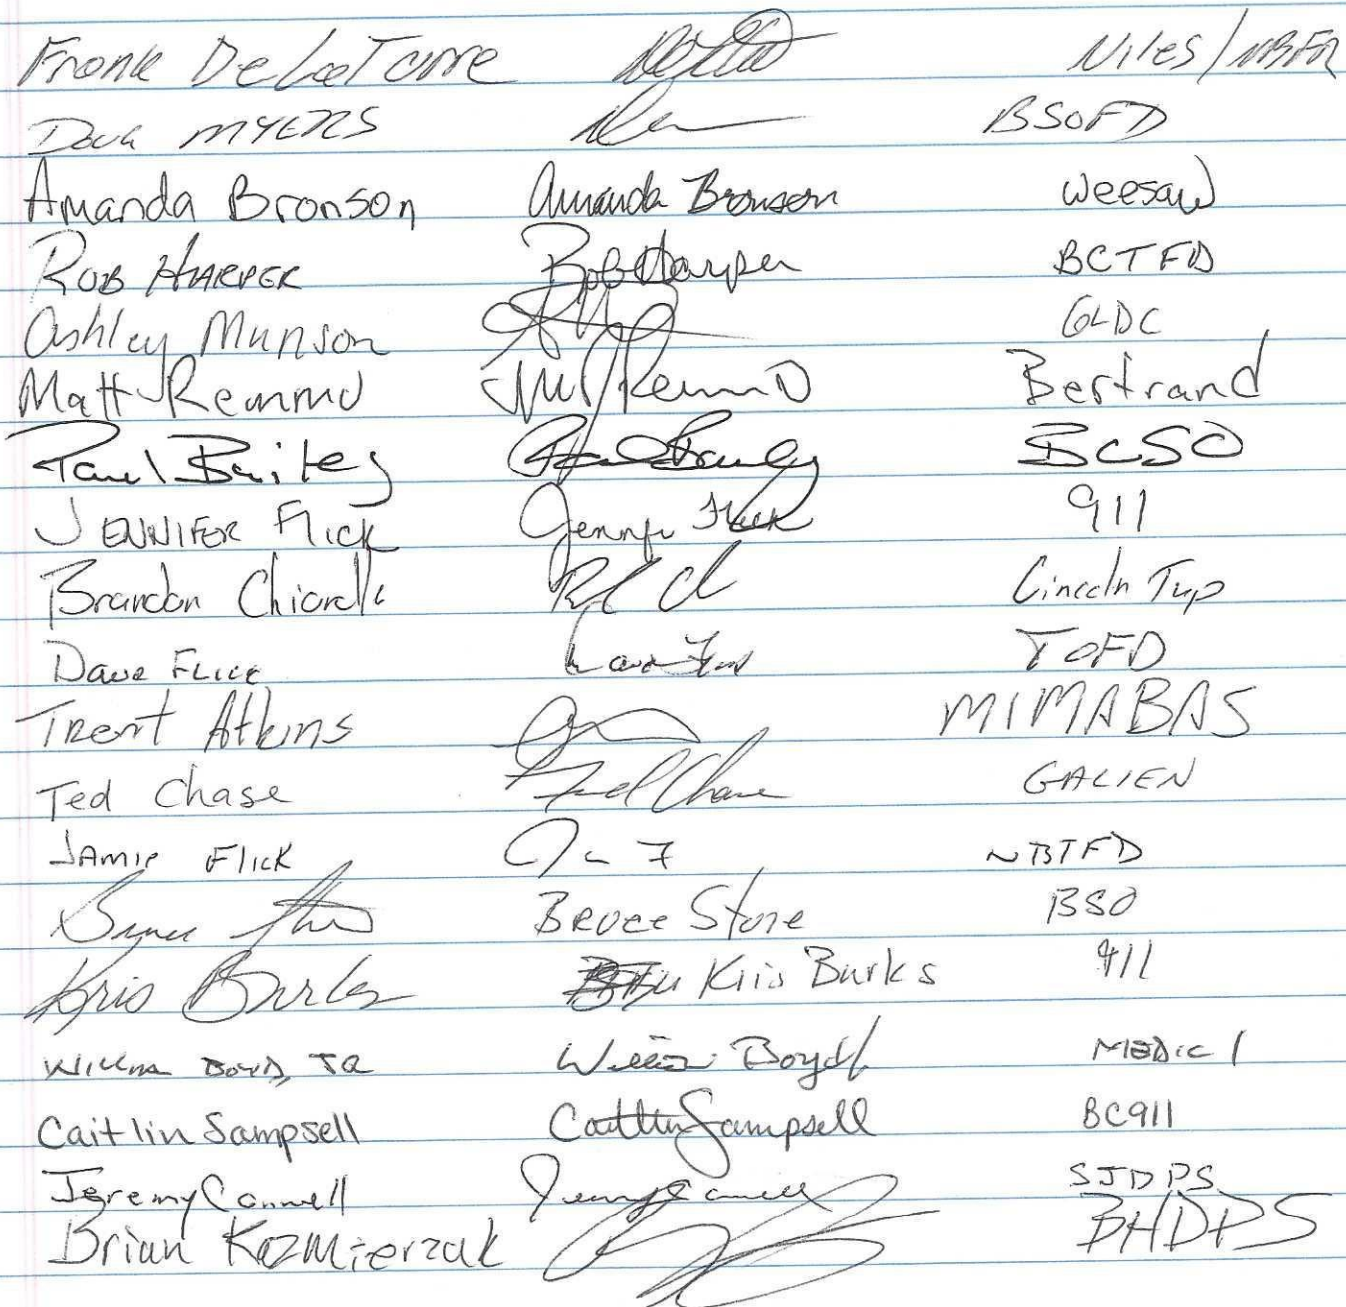 Frank DeLaTorre Niles/
Doug MYERS BSOFD
Amanda Bronson Amanda Bronson Weesaw
ROB HARPER Bob Harper BCTFD
Ashley Munson GLDC
Matt Bertrand
Paul Bailey Paul Bailey BCSO
JENNIFER Flick Jennifer Flick 911
Brandon Lincoln Twp
Dave FLICK TOFD
Trent Atkins MIMABAS
Ted Chase Ted Chase GALIEN
JAMIE FLICK J F NBTFD
Bruce Stone Bruce Stone BSO
Kris Burks Kris Burks 911
William Boyd, JR William Boyd MEDIC 1
Caitlin Sampsell Caitlin Sampsell BC911
Jeremy Connell Jeremy Connell SJDPS
Brian Kazmierzak BHDPS